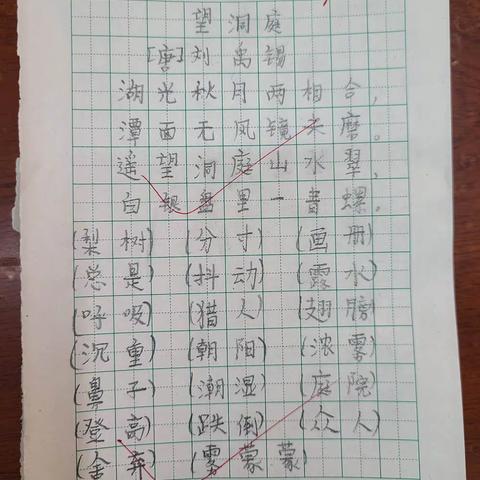 望洞庭
[唐]刘禹锡
湖光秋月两相合，
潭面无风镜未磨。
遥望洞庭山水翠，
白银盘里一青螺。
(梨树)(分寸)(画册)
(总是)(抖动)(露水)
(呼吸)(猎人)(翅膀)
(沉重)(朝阳)(浓雾)
(鼻子)(潮湿)(庭院)
(登高)(跌倒)(众人)
(舍弃)(雾蒙蒙)